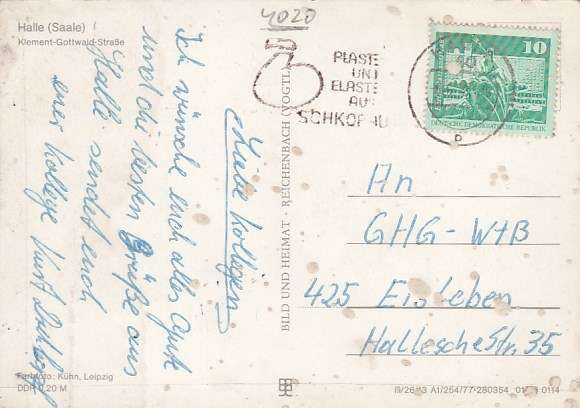 Halle (Saale)
Klement-Gottwald-Straße
4020
PLASTE
UND
ELASTE
AUS
SCHKOPAU
10
DEUTSCHE DEMOKRATISCHE REPUBLIK
Liebe Kollegen
Ich wünsche euch alles Gute
und die besten Grüße aus
Halle sendet euch
euer Kollege Kurt
An
GHG-WtB
425 Eisleben
Hallesche Str. 35
BILD UND HEIMAT · REICHENBACH (VOGTL
Farbfoto: Kühn, Leipzig
DDR 0,20 M
A1/254/77-280354 0114